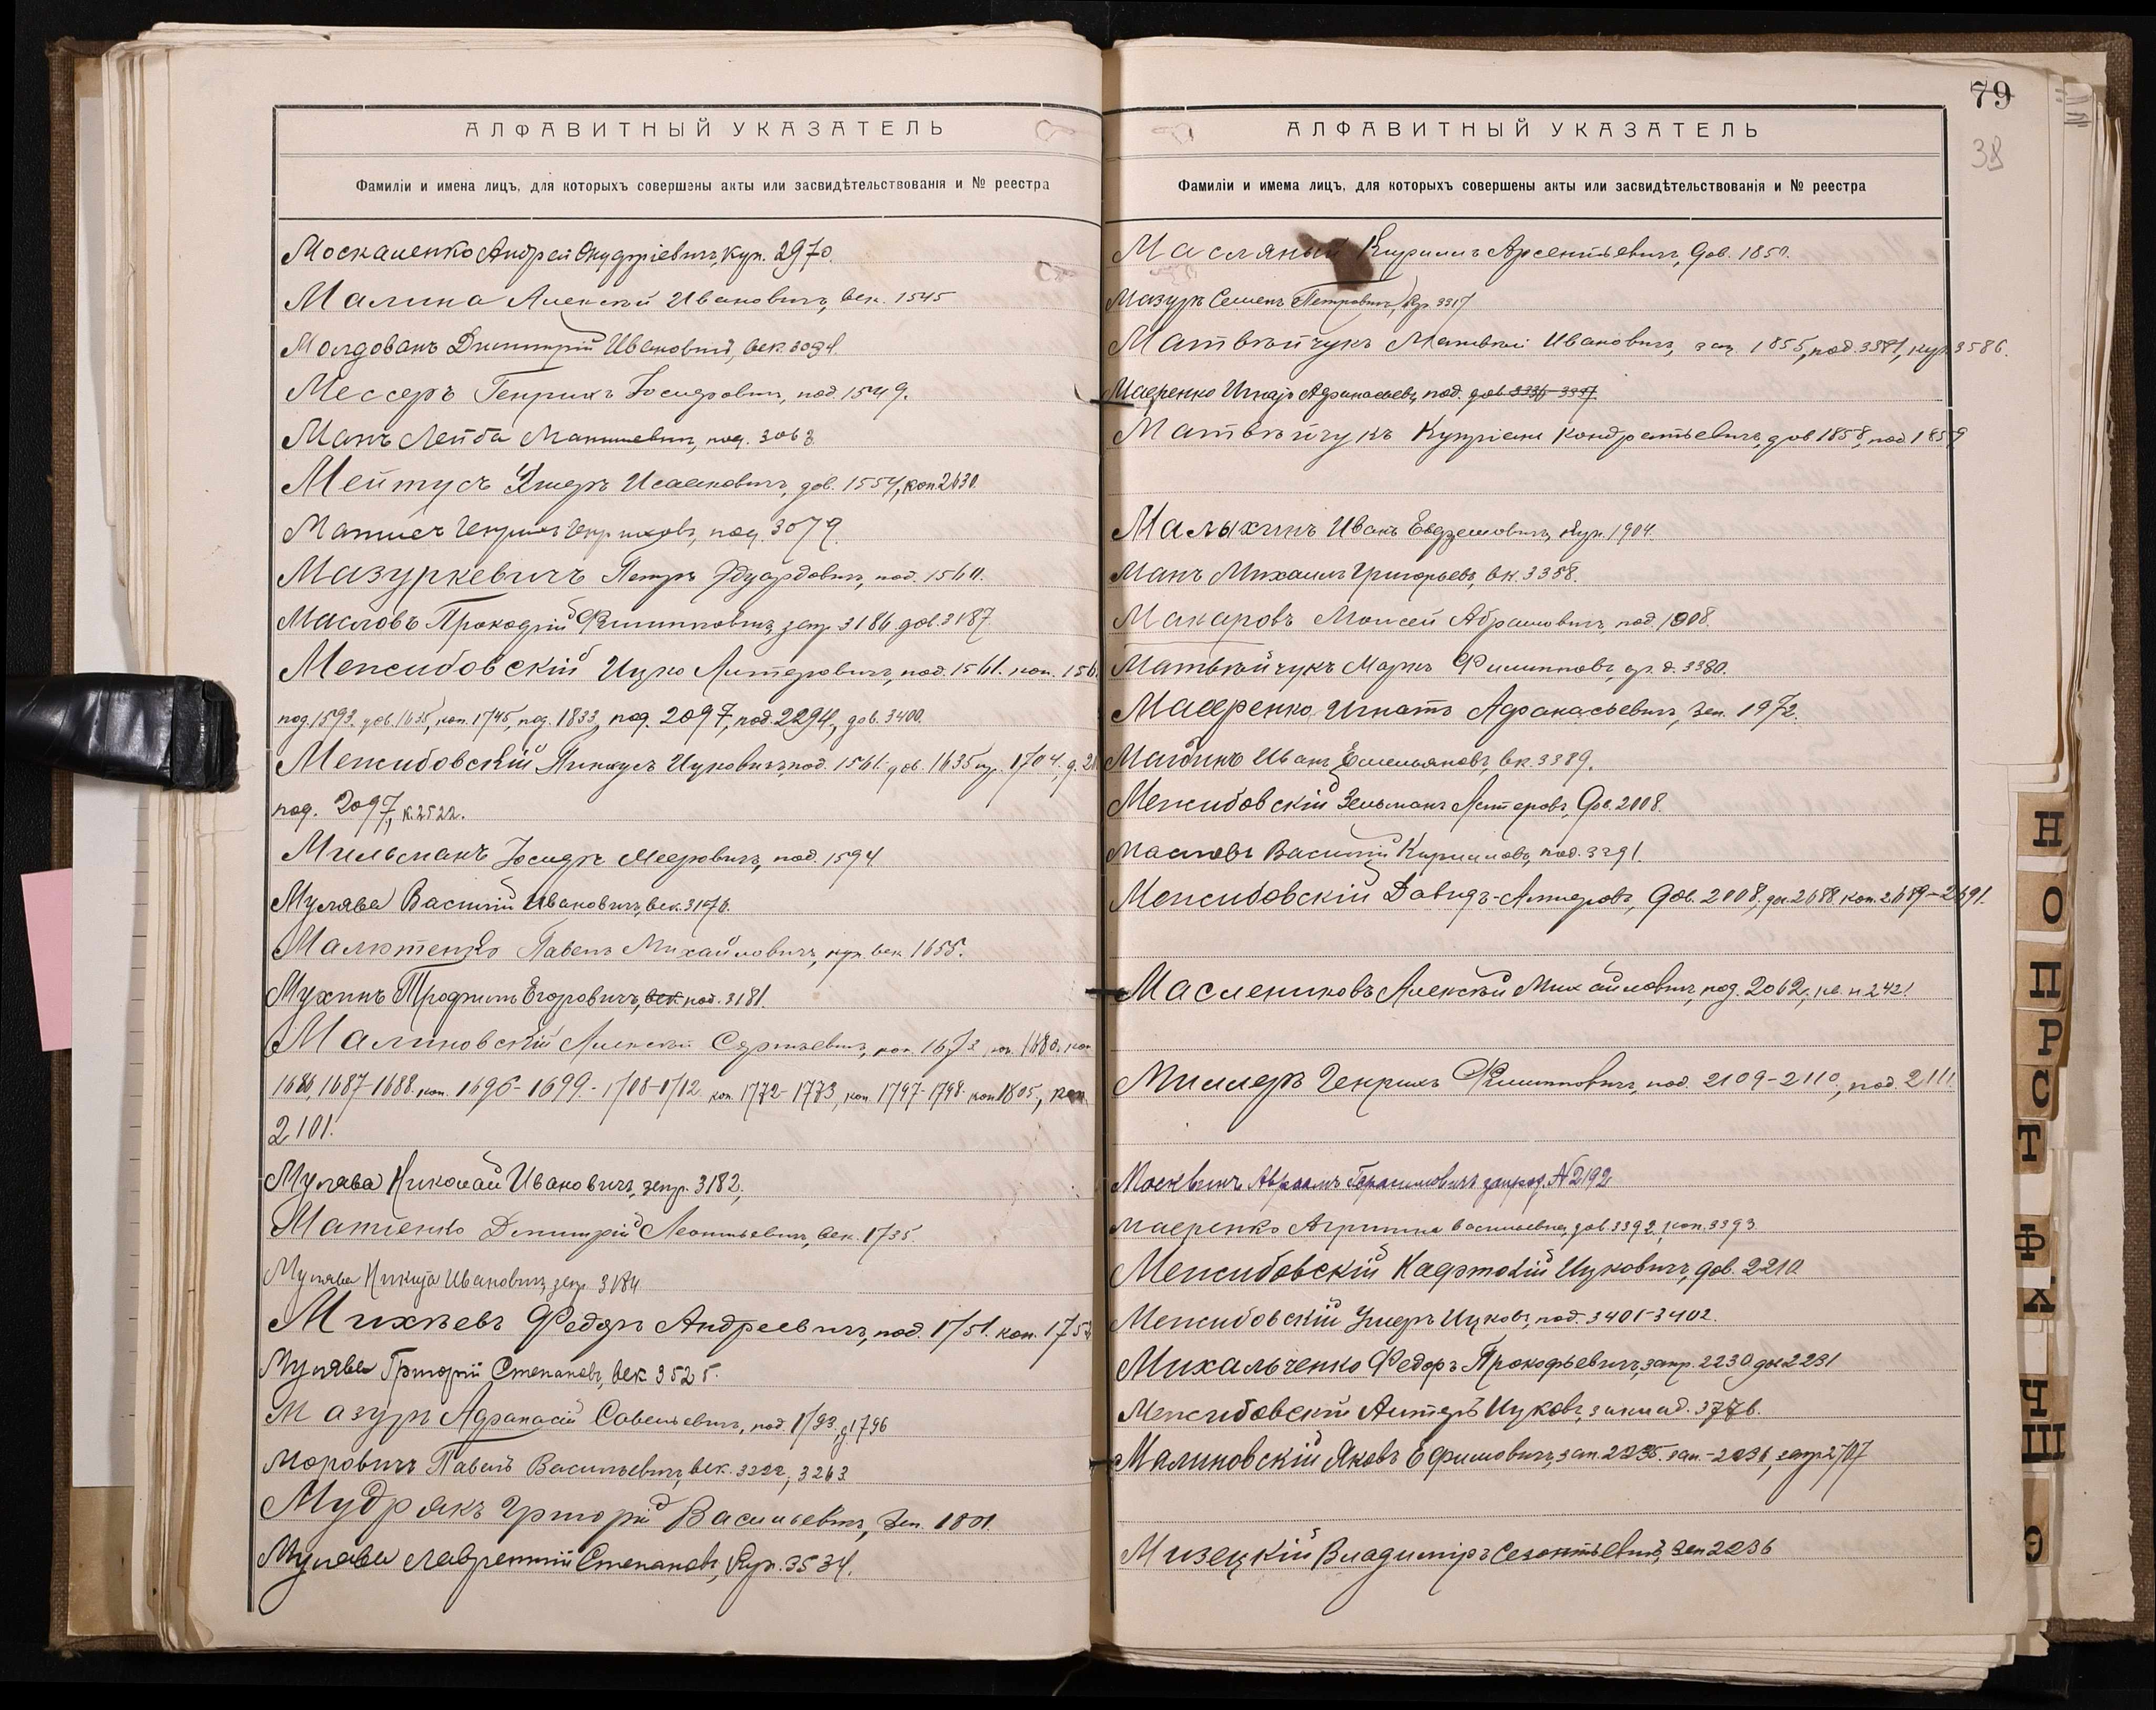 АЛФАВИТНЫЙ УКАЗАТЕЛЬ
Фамиліи и имена лицъ, для которыхъ совершены акты или засвидѣтельствованія и № реестра
Москаленко Андрей Онуфріевичъ, куп. 2970.
Малина Алексѣй Ивановичъ, век. 1545
Молдованъ Димитрій Ивановичъ, век. 3094.
Мессеръ Генрихъ Іосифовичъ, под. 1549.
Манъ Лейба Маншлевичъ, под. 3063
Мейтусъ Ушеръ Исааковичъ, дов. 1554, коп. 2630.
Матисъ Генрихъ Генриховъ, под. 3079.
Мазуркевичъ Петръ Эдуардовичъ, под. 1560.
Масловъ Прокофій Филипповичъ, запр. 3186. дов. 3187.
Межибовскій Ицко Литеровичъ, под. 1561. коп. 156
под. 1593. дов. 1635, коп. 1745, под. 1833, под. 2097, под. 2294, дов. 3400.
Межибовскій Пинхусъ Ицковичъ, под. 1561. дов. 1635 1704.
под. 2097, к. 2522.
Мильманъ Іосифъ Мееровичъ, под. 1594
Мулява Василій Ивановичъ, век. 3176.
Малютенко Павелъ Михайловичъ, куп. век. 1655.
Мухинъ Трофимъ Егоровичъ, век. под. 3181.
Малиновскій Алексѣй Сергѣевичъ, коп. 1673 1680, коп
1686, 1687-1688. коп. 1696-1699. - 1708-1712 коп. 1772-1773, коп. 1797-1798. коп. 1805, коп.
2101.
Мулява Николай Ивановичъ, запр. 3182,
Матіенко Димитрій Леонтьевичъ, век. 1735.
Мулява Никита Ивановичъ, запр. 3184
Михѣевъ Федоръ Андреевичъ, под. 1751. коп. 175
Мулява Григорій Степановъ, век 3525.
Мазуръ Афанасій Савельевичъ, под. 1793, д 1796
Моровичъ Павелъ Васильевичъ, век. 3222, 3263
Мудрякъ Григорій Васильевичъ, Зап. 1801.
Мулява Лаврентій Степановъ, Куп. 3534.
79
38
АЛФАВИТНЫЙ УКАЗАТЕЛЬ
Фамиліи и имема лицъ, для которыхъ совершены акты или засвидѣтельствованія и № реестра
Масляный Кирилъ Арсентьевичъ, Дов. 1850.
Мазуръ Семенъ Петровичъ, Кр. 3317
Матвѣйчукъ Матвѣй Ивановичъ, зап. 1855, под. 3381, куп. 3586.
Маеренко Игнат Афанасьевъ, под. дов 3336-3337
Матвѣйчукъ Купріанъ Кондратьевичъ, дов 1858, под 1859
Малыхинъ Иванъ Евдокимовичъ, Куп. 1904.
Манъ Михаилъ Григорьевъ, вк. 3358.
Макаровъ Моисей Абрамовичъ, под. 1908.
Матвѣйчукъ Маркъ Филипповъ, др. д. 3380.
Маеренко Игнатъ Афанасьевичъ, Зап. 1972.
Иванъ Емельяновъ, вк. 3389.
Межибовскій Зельманъ Литеровъ, Дов. 2008.
Масловъ Василій Кирилловъ, под. 3391.
Межибовскій Давидъ-Литеровъ, Дов. 2008, дов. 2688 коп. 2689-2691.
Маслениковъ Алексѣй Михайловичъ, под. 2062, 2421
Миллеръ Генрихъ Филипповичъ, под. 2109-2110, под. 2111.
Москвинъ Авраамъ Герасимовичъ запрод. № 2192
Маеренко Агрипина Васильевна, дов. 3392, коп. 3393.
Межибовскій Нафтолій Ицковичъ, дов. 2210
Межибовскій Ушеръ Ицковъ, под. 3401-3402.
Михальченко Федоръ Прокофьевичъ, запр. 2230 дов 2231
Межибовскій Литеръ Ицковъ, заклад. 3776.
Малиновскій Яковъ Ефимовичъ, зап. 2235. зап.-2236, запр 2707
Мизецкій Владиміръ Созонтьевичъ, Зап 2236
Н
О
П
Р
С
Т
Ф
Х
Ч
Ш
Э